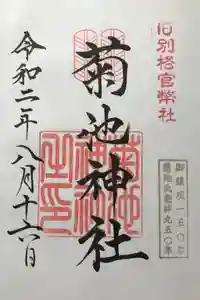 旧別格官幣社
御鎮座一五〇年
九五〇年
菊池神社
菊池
神社
之印
令和二年八月十六日